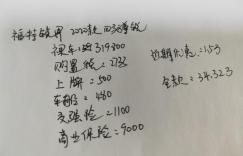 福特锐界 2023款 四驱尊锐
裸车=319800
购置税=2733
上牌=500
车船=480
交强险=1100
商业保险=9000
近期优惠=1.53
全款=34.323